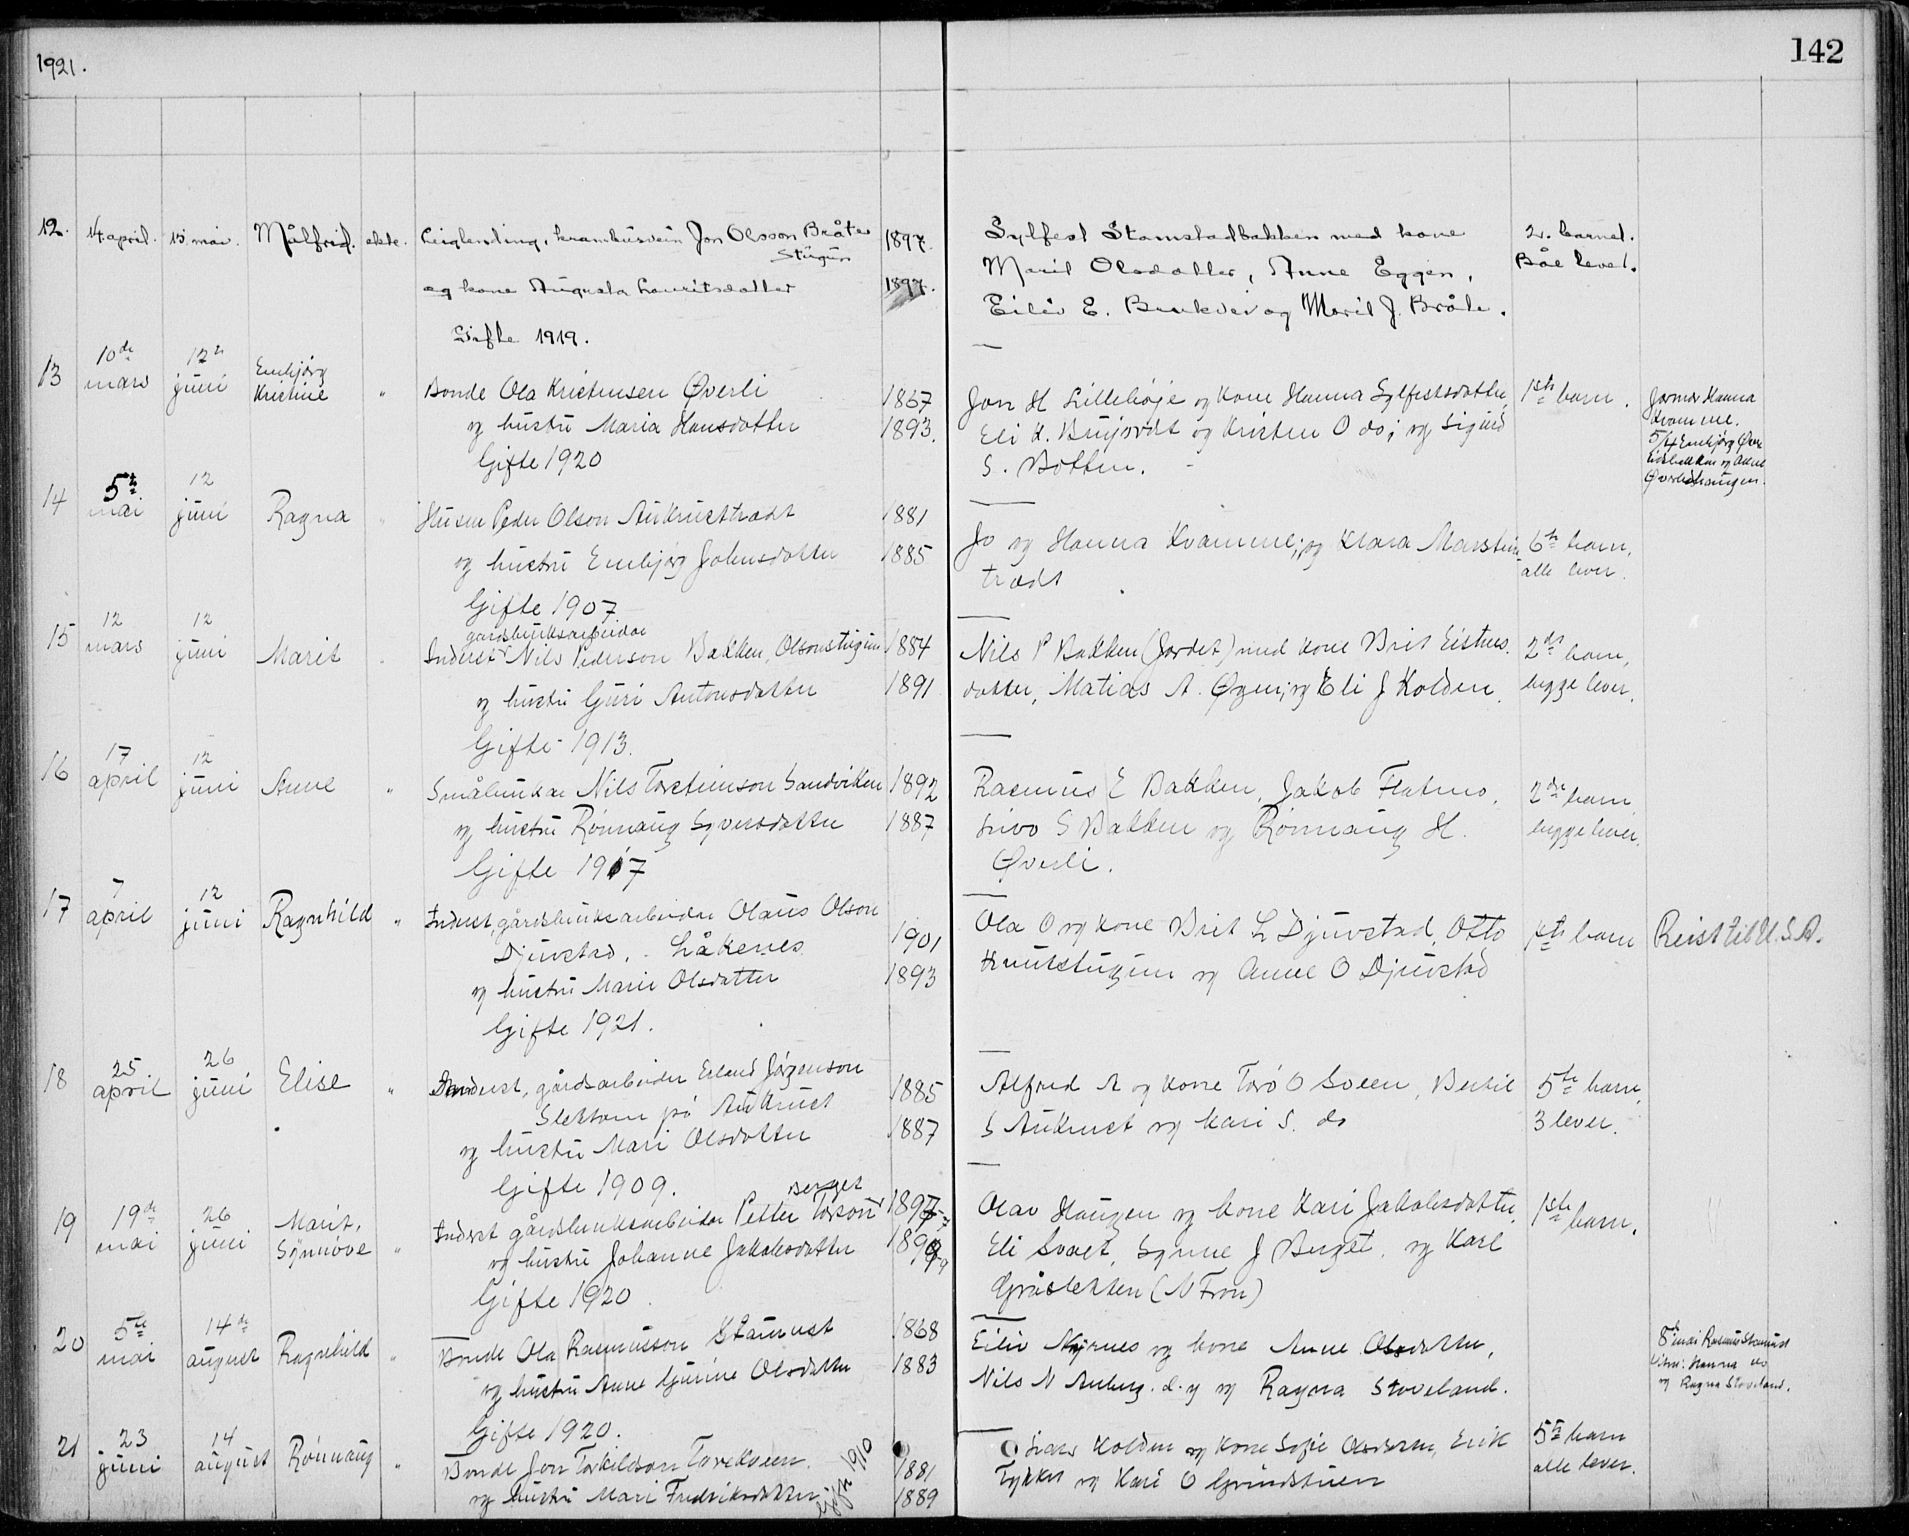 1921.
142
12. 14. april. 15. mai. Målfrid. ekte. Leiglending, krambusvein Jon Olsson Bråte 1897.
Stugun
og kone Augusta Lauritsdatter 1897.
Gifte 1919.
Sylfest Stamstadbakken med kone 2. barnet.
Marit Olsdatter, Anne Eggen, Båe level.
Eiliv E. og Marit J. Bråte.
13 10de mars 12te juni Embjørg Kristine " Bonde Ola Kristensen Øverli 1867
og hustru Maria Hansdatter 1893.
Gifte 1920
Jon H Lillehøje og kone Hanna Sylfestsdatter, 1ste barn.
Eli K. og Kristen O do; og Sigurd
S. Botten.
Jormor Hanna
Kvamme.
5/4 Embjørg Øver
og
Øverlihaugen.
14 5te mai 12 juni Ragna " Husm Peder Olson Aukrusttrædt 1881
og hustru Embjørg Johnsdatter 1885
Gifte 1907
Jo og Hanna Kvamme; og Klara Marstein 6te barn,
trædt alle lever.
15 12 mars 12 juni Marit " gårdsbruksarbeider
Inderst Nils Pederson Bakken, Olsonstugun 1884
og hustru Guri Antonsdatter 1891
Gifte 1913.
Nils P Bakken (Jordet) med kone Brit Eistens- 2det barn,
datter, Matias A. Øyen; og Eli J Kolden. begge lever.
16 17 april 12 juni Anne " Småbruker Nils Torsteinson Sandviken 1892
og hustru Rønnaug Syversdatter 1887
Gifte 1917
Rasmus E Bakken, Jakob Flatmo, 2det barn
S Bakken og Rønnaug H. begge lever.
Øverli.
17 7 april 12 juni Ragnhild " Inderst, gårdsbruksarbeider Olaus Olson
Djuvstad, Låkenes 1901
og hustru Mari Olsdatter 1893
Gifte 1921.
Ola O og kone Brit L Djuvstad, Otto 1ste barn Reist til U.S.A.
Knutstugun og Anne O Djuvstad
18 25 april 26 juni Elise " Inderst, gårdsarbeider Erland Jørgenson 1885
Slettom på Aukrust
og hustru Mari Olsdatter 1887
Gifte 1909.
Alfred A og kone Torø O Sveen, Bertil 5te barn,
S Aukrust og Kari S. do 3 lever.
19 19de mai 26 juni Marit, Synnøve " Berget
Inderst gårdsbruksarbeider Petter Torson 1897
og hustru Johanne Jakobsdatter
Gifte 1920.
Olav Haugen og kone Kari Jakobsdatter, 1ste barn.
Eli Svaet, Synne J Berget, og Karl
Gråsletten (N Fron)
20 5te mai 14de august Ragnhild " Bonde Ola Rasmusson Stamust 1868
og hustru Anne Gurine Olsdatter 1883
Gifte 1920.
Eiliv Nyrnes og kone Anne Olsdatter,
Nils N Amberg. d. y og Ragna Stoveland.
8de mai Rasmus Stamust
Hanna do
og Ragna Stoveland.
21 23 juni 14 august Rønnaug " Bonde Jon Torkildson Torekveen 1881
og hustru Mari Fredriksdatter. Gifte 1910 1889
Lars Kolden og kone Sofie Olsdatter, Erik 5te barn
og Kari O Grindstuen alle lever.